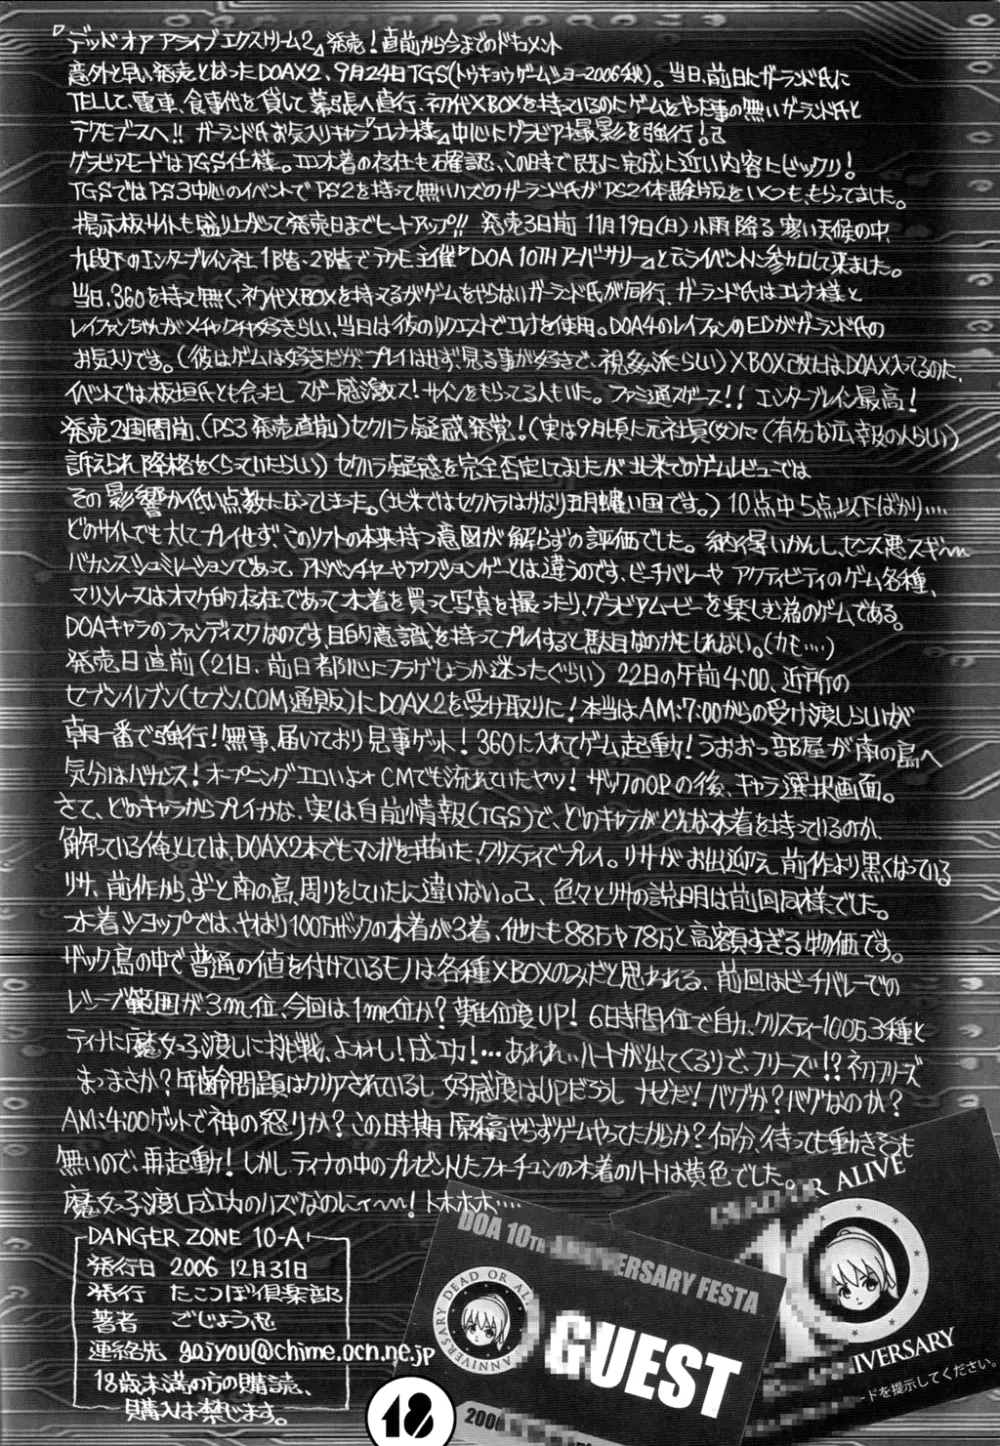 『デッドオアアライブエクストリーム2』発売！直前から今までのドキュメント
意外と早い発売となったDOAX2、9月24日TGS(トウキョウゲームショー2006秋)。当日、前日にガーランド氏に
TELして、電車、食事代を貸して幕張へ直行、初代XBOXを持っているのにゲームをやった事の無いガーランド氏と
テクモブースへ!! ガーランド氏お気入りキャラ『エレナ様』中心にグラビア撮影を強行！
グラビアモードはTGS仕様。エロ水着の存在も確認、この時で既に完成に近い内容にビックリ！
TGSではPS3中心のイベントでPS2を持って無いハズのガーランド氏がPS2体験版をいくつも、もらってました。
掲示板サイトも盛り上がって発売日までヒートアップ!! 発売3日前 11月19日(日)小雨降る寒い天候の中、
九段下のエンターブレイン社1階・2階でテクモ主催『DOA 10TH アニバーサリー』と云うイベントに参加して来ました。
当日、360を持って無く、初代XBOXを持ってるがゲームをやらないガーランド氏が同行、ガーランド氏はエレナ様と
レイファンちゃんがメチャクチャ好きらしい、当日は彼のリクエストでエレナを使用。DOA4のレイファンのEDがガーランド氏の
お気入りです。(彼はゲームは好きだが、プレイはせず、見る事が好きで、視姦派らしい)XBOX
イベントでは板垣氏とも会ったし スゲー感激ス！サインをもらってる人もいた。ファミ通スゲース！！ エンターブレイン最高！
発売2週間前、(PS3発売直前)セクハラ疑惑発覚！(実は9月頃に元社員(女)に(有名な広報の人らしい)
訴えられ降格をくらっていたらしい)セクハラ疑惑を完全否定してましたが北米でのゲームレビューでは
その影響か低い点数になってしまった。(北米ではセクハラはかなり五月蠅い国です。) 10点中5点以下ばかり‥‥
どのサイトでも大してプレイせず、このソフトの本来持つ意図が解らずの評価でした。納得いかんし、センス悪スギ〜
バカンスシュミレーションであって アドベンチャーやアクションゲーとは違うのです、ビーチバレーや アクティビティのゲーム各種、
マリンレースはオマケ的存在であって水着を買って写真を撮ったり、グラビアムービーを楽しむ為のゲームである。
DOAキャラのファンディスクなのです、目的意識を持ってプレイすると駄目なのかもしれない。(カモ‥‥)
発売日直前(21日、前日都心にフラゲしようか迷ったぐらい)22日の午前4:00、近所の
セブンイレブン(セブン.COM通販)にDOAX2を受け取りに！本当はAM:7:00からの受け渡しらしいが
朝一番で強行！無事、届いており見事ゲット！360に入れてゲーム起動！うおおっ部屋が南の島へ
気分はバカンス！オープニングエロいよォ CMでも流れていたヤツ！ザックのOPの後、キャラ選択画面。
さて、どのキャラからプレイかな、実は自前情報(TGS)で、どのキャラがどんな水着を持っているのか、
解っている俺としては、DOAX2本でもマンガを描いた、クリスティでプレイ。リサがお出迎え、前作より黒くなっている
リサ、前作から、ずっと南の島周りをしていたに違いない。色々とリサの説明は前回同様でした。
水着ショップでは、やはり100万ザックの水着が3着、他にも88万や78万と高額すぎる物価です。
ザック島の中で普通の値を付けているモノは各種XBOXのみだと思われる、前回はビーチバレーでの
レシーブ範囲が3m位、今回は1m位か？難位度UP！6時間位で自力、クリスティー100万3種と
ティナに魔女っ子渡しに挑戦、よォし！成功！‥‥あれれぃハートが出てくるりで、フリーズ!?初フリーズ
まっまさか？年齢問題はクリアされているし 好感度はUPだろうし ナゼだ！バグか？バグなのか？
AM:4:00ゲットで神の怒りか？この時期 原稿やらずゲームやってたからか？何分、待っても動きそうも
無いので、再起動！しかし、ティナの中のプレゼントしたフォーチュンの水着のハートは黄色でした。
魔女っ子渡し成功のハズなのにィ〜！トホホホ‥‥
DANGER ZONE 10-A
発行日 2006 12月31日
発行 たこつぼ倶楽部
著者 ごじょう忍
連絡先 gojyou@chime.ocn.ne.jp
18歳未満の方の購読、
購入は禁じます。
DOA 10TH ANNIVERSARY FESTA
ANNIVERSARY DEAD OR AL
GUEST
200
DEAD OR ALIVE
NIVERSARY
ードを提示してください。
18